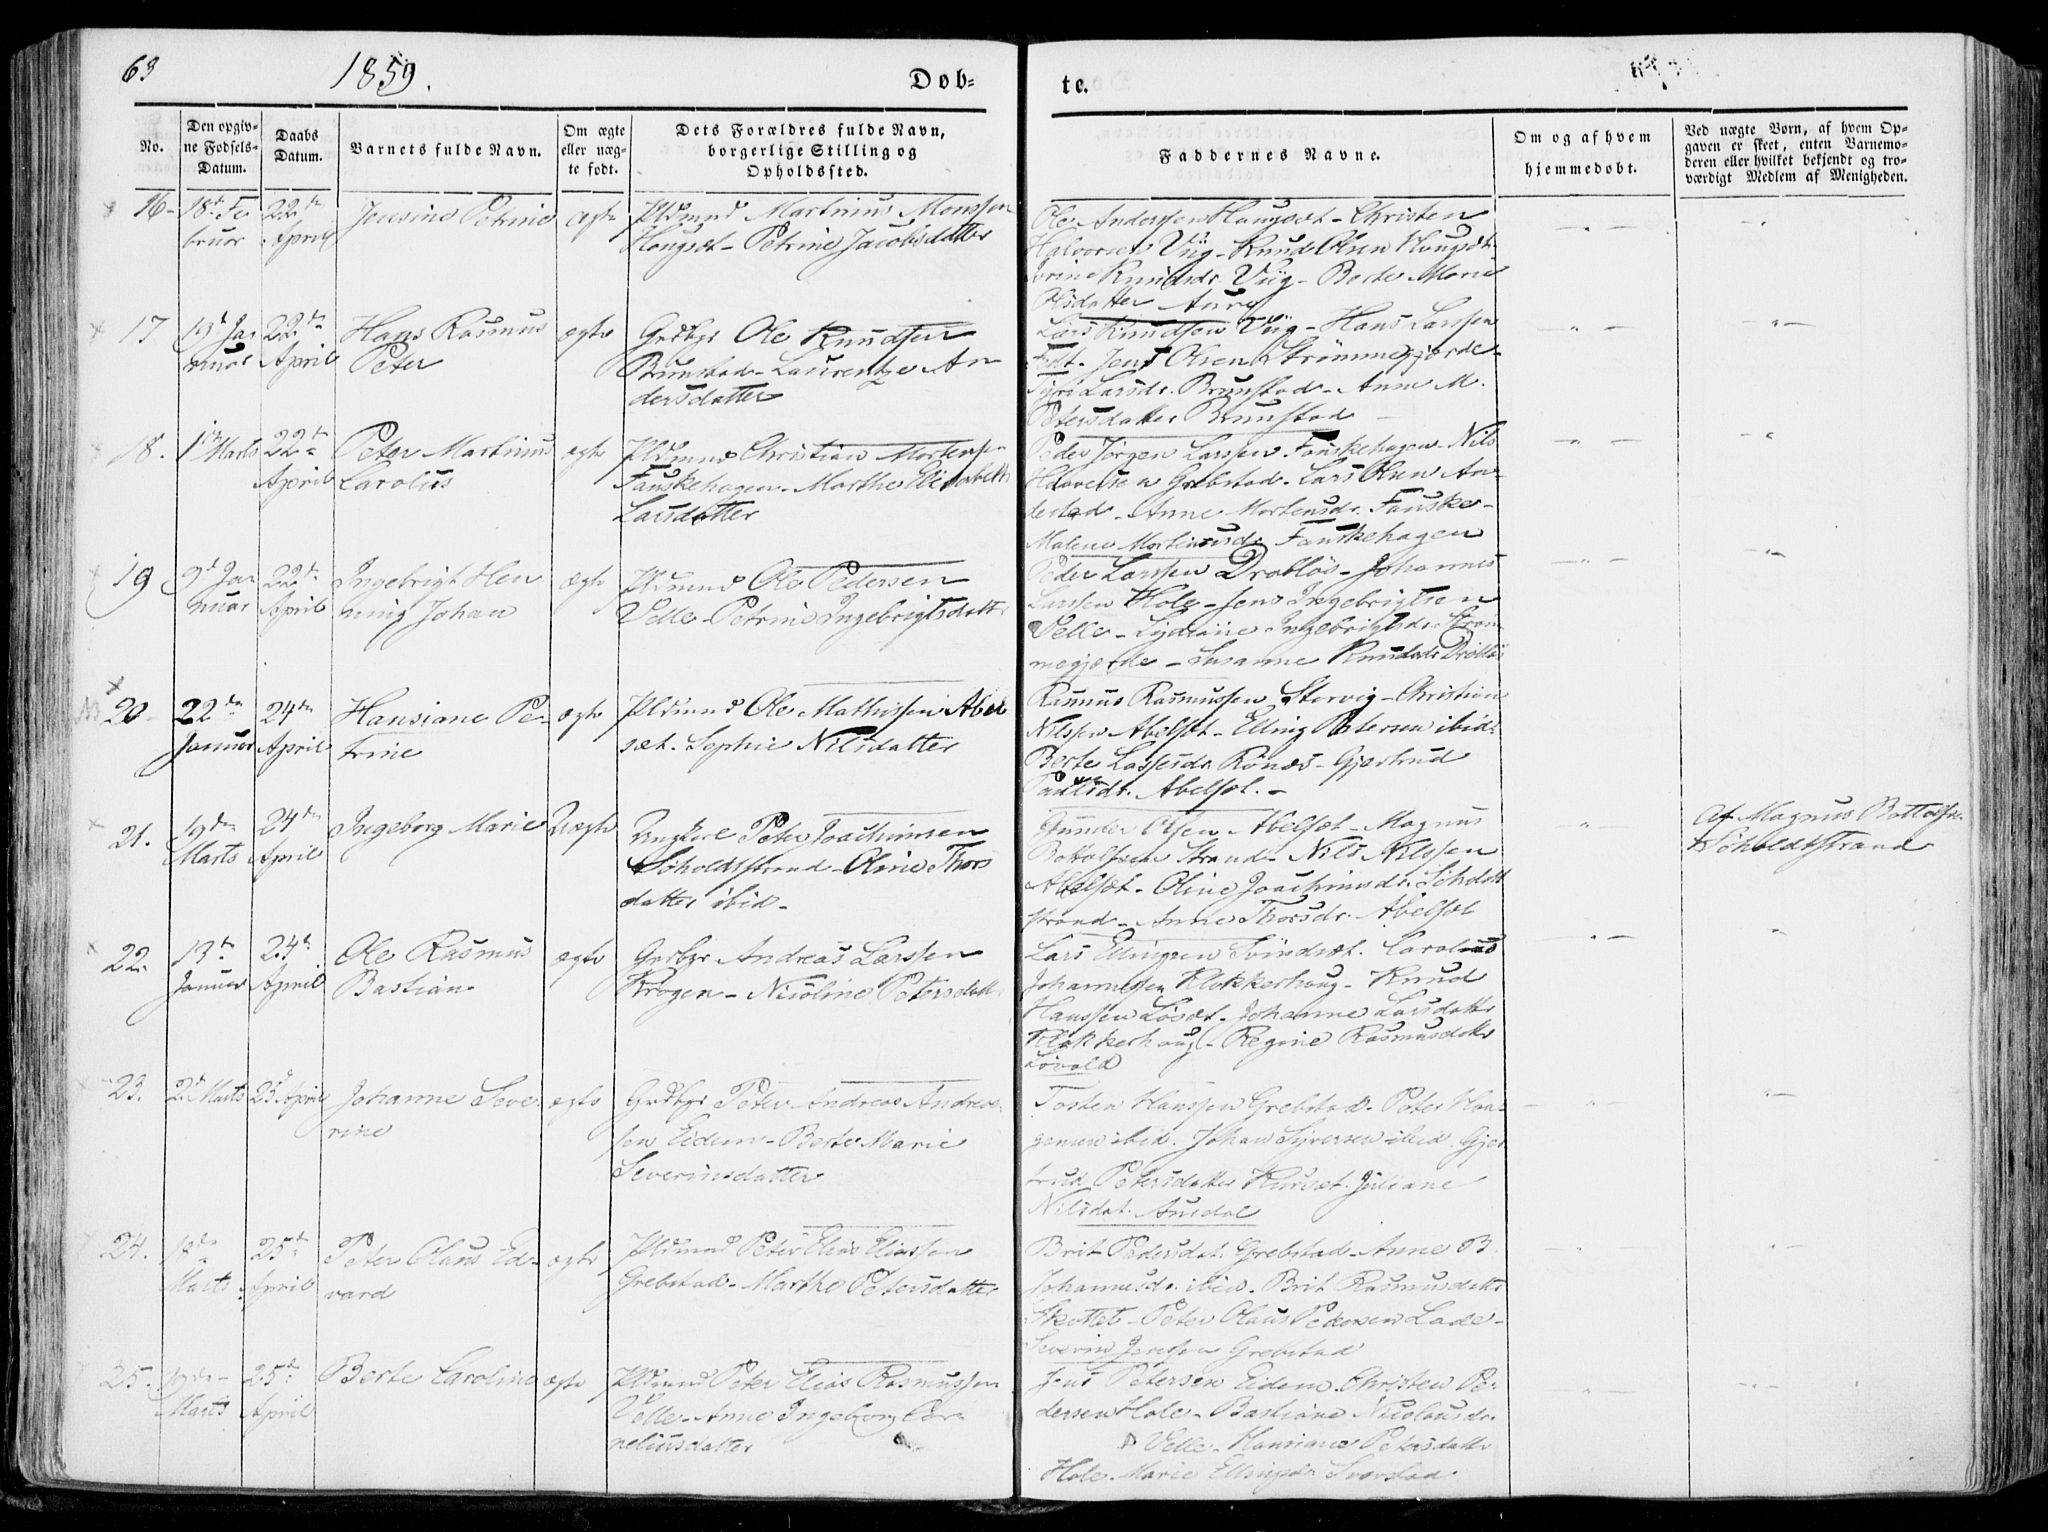 63
1859.
Dob-
te.
No.
Den opgiv-
ne Fodsels-
Datum.
Daabs
Datum.
Barnets fulde Navn.
Om ægte
eller uæg-
te født.
Dets Forældres fulde Navn,
borgerlige Stilling og
Opholdssted.
Faddernes Navne.
Om og af hvem
hjemmedobt.
Ved uægte Born, af hvem Op-
gaven er skeet, enten Barnemo-
deren eller hvilket bekjendt og tro-
værdigt Medlem af Menigheden.
16
18de Fe
bruar
22de
April
Jensine Petrine
ægte
Pldmand Martinus Monssen
Hougset - Petrine Jacobsdatter
Ole Anderssen Haugset - Christen
Halvorsen Viig - Knud Olsen Hougset
Knudsdr. Viig - Berte Marie
Olsdatter Aure
17
19de Ja
nuar
22de
April
Hans Rasmus
Peter
ægte
Grdbgr Ole Knudsen
Brunstad - Laurentze An
dersdatter
Lars Knudsen Viig - Hans Larssen
Jens Olsen Strømmegjerde -
Larsdr. Brunstad - Anne M.
Petersdatter Brunstad
18.
1ste Marts
22de
April
Peter Martinus
Carolus
ægte
Pldmand Christian Mortensen
Fauskehagen - Marthe Elisabeth
Larsdatter
Peder Jörgen Larssen Fauskehagen - Nils
Grebstad - Lars Olsen An-
destad - Anne Mortensdr. Fauske -
Malene Fauskehagen
19
9de Ja
nuar
22de
April
Ingebrigt Hen
ning Johan
ægte
Pldmand Ole Pedersen
Velle - Petrine Ingebrigtsdatter
Peder Larssen Drabløs - Johannes
Larssen Hole - Jens Ingebrigtsen
Velle - Ingebrigtsdr. Strøm
megjerde - Susanne Knudsdr Drabløs
20
22de
Januar
24de
April
Hansiane Pe-
trine
ægte
Pldmand Ole Mathissen Abel
set - Sophie Nilsdatter
Rasmus Rasmussen - Christian
Nilssen Abelset - Elling Petersen ibid
Berte Lassesdr. Rönæs - Gjertrud
Paulsdr. Abelset. -
21.
19de
Marts
24de
April
Ingeborg Marie
Uægte
Ungkarl Peter Joachimsen
Scholdtstrand - Oline Thors
datter ibid -
Gunder Olsen Abelset - Magnus
Bottolfsen Strand - Nils Nilssen
Abelset - Oline Joachimsdr. Scholdt
strand - Anne Thorsdr. Abelset
Af Magnus Bottolfsen
Scholdtstrand
22.
13de
Januar
24de
April
Ole Rasmus
Bastian
ægte
Grdbgr Andreas Larssen
Krogen - Nicoline Petersdatter
Lars Ellingsen Svindset. Carolus
Johannessen Klokkerhoug - Knud
Hanssen Löset - Johanne Larsdatter
Klokkerhoug - Regine Rasmusdatter
Løvold
23.
2de Marts
25de April
Johanne Seve-
rine
ægte
Grdbgr Peter Andreas Andreas-
sen Eidem - Berte Marie
Severinsdatter
Tosten Hanssen Grebstad - Peter Haa-
gensen ibid. Johan Syversen ibid Gjer
trud Petersdatter Kurset. Juliane
Nilsdat. Amdal
24.
18de
Marts
25de
April
Peter Olaus Ed-
vard
ægte
Pldmand Peter Elias Eliassen
Grebstad - Marthe Petersdatter
Brit Pedersdat. Grebstad - Anne B.
Johannesdr. ibid - Brit Rasmusdatter
Skottet - Peter Olaus Pedersen Lade -
Severin Jenssen Grebstad
25.
19de
Marts
25de
April
Berte Caroline
ægte
Pldmand Peter Elias Rasmussen
Velle - Anne Ingeborg Cor-
neliusdatter
Jens Petersen Eidem - Christen Pe-
dersen Hole - Bastiane Nicolausdr.
Velle - Hansiane Petersdatter
Hole - Marie Ellingsdr. Svorstad